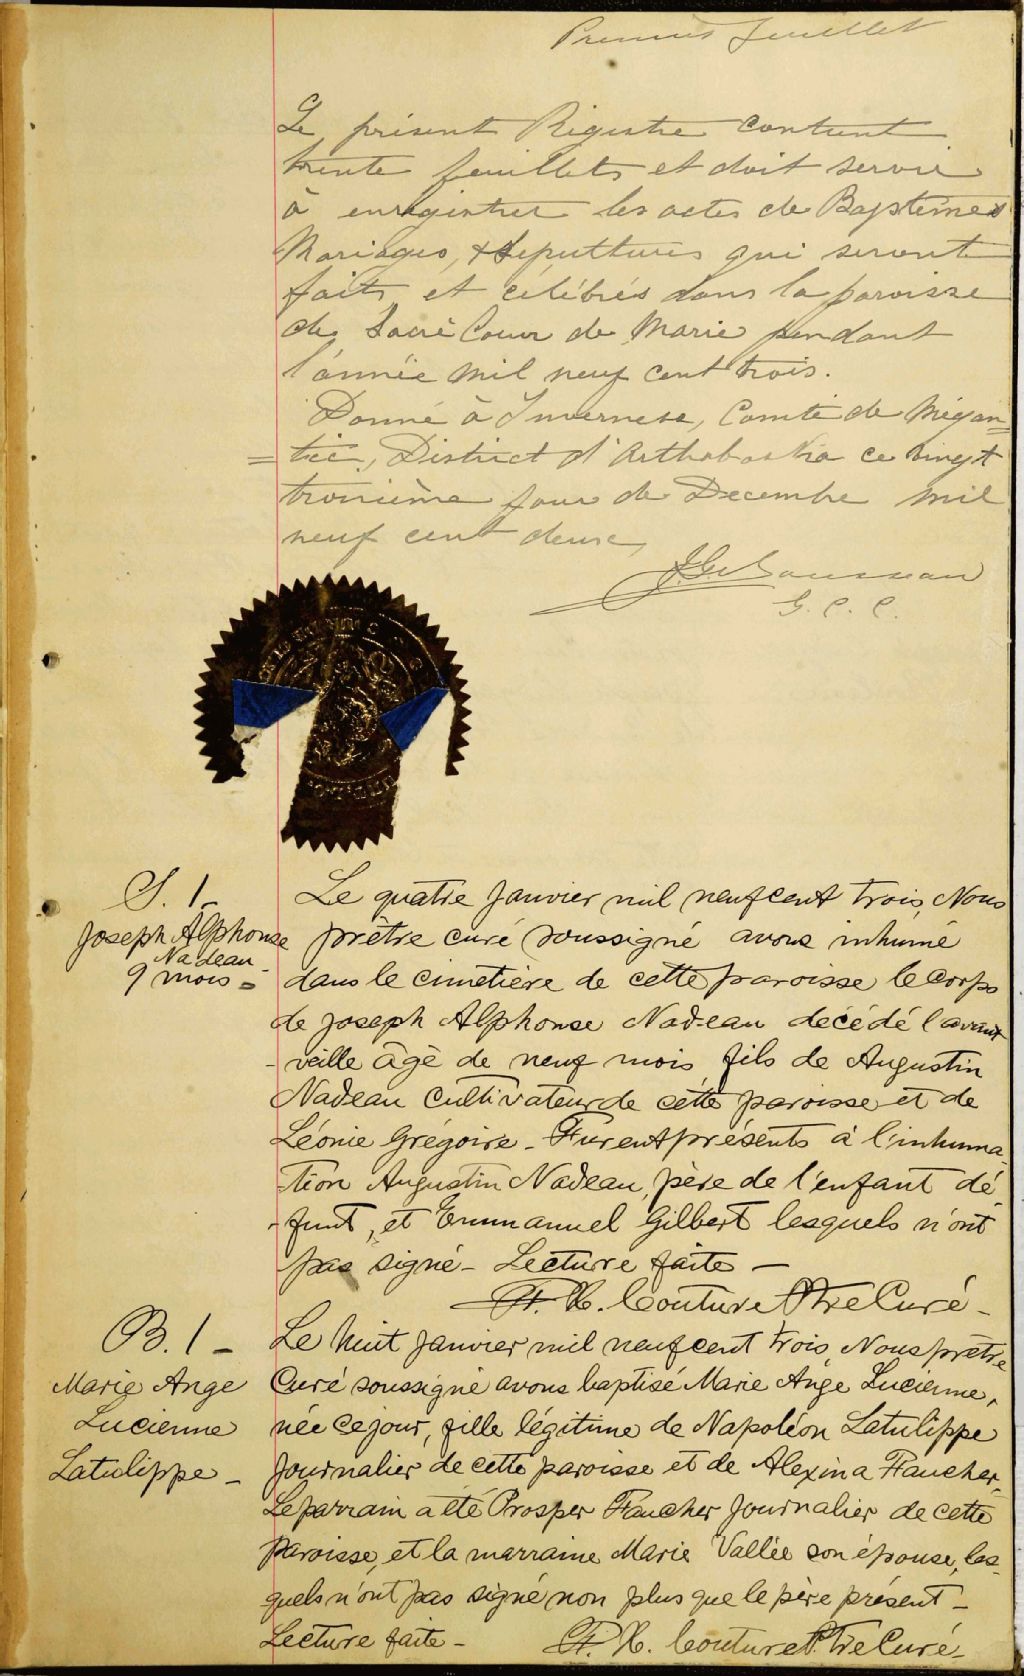 Premier feuillet
Le présent Régistre contient
trente feuillets et doit servir
à enrégistrer les actes de Baptêmes
Mariages, & Sépultures qui seront
faits et célébrés dans la paroisse
de Sacré Coeur de Marie pendant
l'année mil neuf cent trois.
Donné à Inverness, Comté de Mégan=
=tic, District d'Arthabaska ce vingt
troisième jour de Décembre mil
neuf cent deux,
G. C. C.
S. 1-
Joseph Alphonse
Nadeau
9 mois -
Le quatre Janvier mil neuf cent trois, Nous
prêtre curé soussigné avons inhumé
dans le cimetière de cette paroisse le corps
de Joseph Alphonse Nadeau décédé l'avant
- veille âgé de neuf mois fils de Augustin
Nadeau cultivateur de cette paroisse et de
Léonie Grégoire - Furent présents à l'inhuma-
tion Augustin Nadeau, père de l'enfant dé
-funt, et Emmanuel Gilbert lesquels n'ont
pas signé - Lecture faite -
F. X. Couture Ptre Curé -
B. 1 -
Marie Ange
Lucienne
Latulippe -
Le huit Janvier mil neuf cent trois, Nous prêtre
Curé soussigné avons baptisé Marie Ange Lucienne,
née ce jour, fille légitime de Napoléon Latulippe
Journalier de cette paroisse et de Alexina Faucher.
Le parrain a été Prosper Faucher Journalier de cette
Paroisse, et la marraine Marie Vallée son épouse, les-
quels n'ont pas signé non plus que le père présent -
Lecture faite - F. X. Couture Ptre Curé -